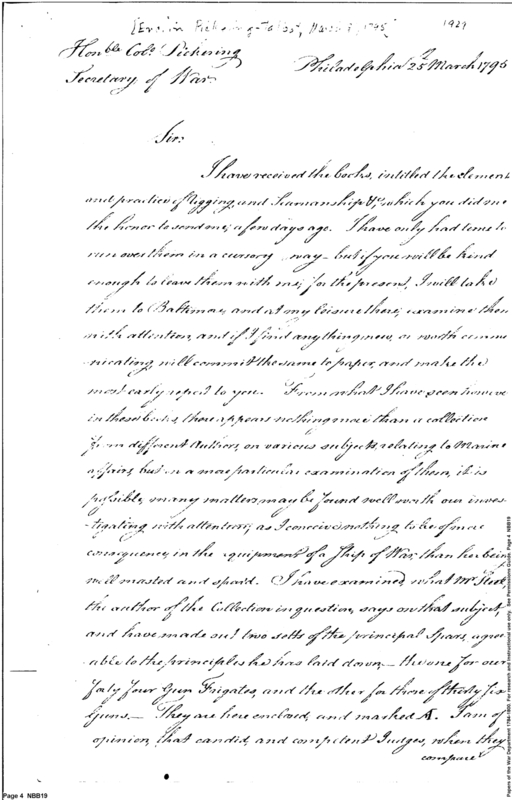 1929
Honble Colo. Pickering
Secretary of War.
Philadelphia 25th March 1795
Sir:
I have received the books, intitled the element
and practice of rigging, and Seamanship &c; which you did me
the honor to send me; a few days ago. I have only had time to
run over them in a cursory way - but if you will be kind
enough to leave them with me; for the present, I will take
them to Baltimore, and at my leisure there, examine them
with attention, and if I find any thing new, or worth commu
nicating, will commit the same to paper, and make the
most early report to you. From what I have seen however
in these books, there appears nothing more than a collection
from different Authors, on various subjects, relating to Marine
affairs, but on a more particular examination of them, it is
possible, many matters may be found well worth our inves-
tigating with attention; as I conceive nothing to be of more
consequence, in the equipment of a Ship of War, than her being
well masted and spar'd. I have examined, what Mr. Steel,
the author of the Collection in question, says on that subject,
and have made out two setts of the principal Spars, agree-
able to the principles he has laid down, - the one for our
forty four Gun Frigates, and the other for those of thirty six
Guns. - They are here enclosed, and marked A. I am of
opinion, that candid, and competent Judges, when they
compare
Page 4 NBB19
Papers of the War Department 1784-1800. For research and instructional use only. See Permissions Guide. Page 4 NBB19